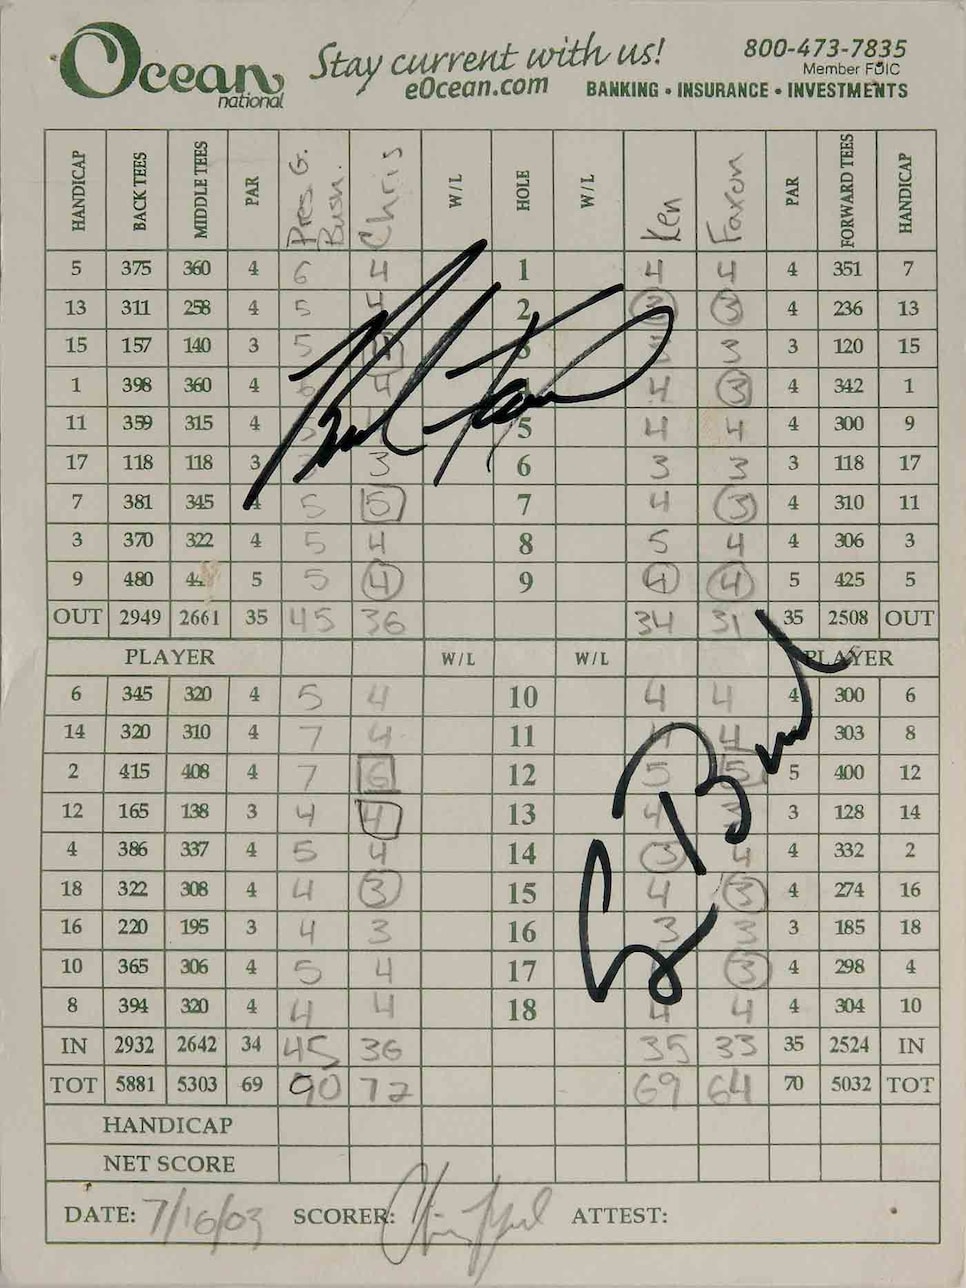 Ocean
national
Stay current with us!
eOcean.com
800-473-7835
Member FDIC
BANKING • INSURANCE • INVESTMENTS
HANDICAP BACK TEES MIDDLE TEES PAR Pres G. Bush. Chris W/L HOLE W/L Ken Faxon PAR FORWARD TEES HANDICAP
5 375 360 4 6 4 1 4 4 4 351 7
13 311 258 4 5 4 2 3 3 4 236 13
15 157 140 3 5 4 3 3 3 120 15
1 398 360 4 6 4 4 3 4 342 1
11 359 315 4 5 5 4 4 4 300 9
17 118 118 3 3 6 3 3 3 118 17
7 381 345 4 5 5 7 4 3 4 310 11
3 370 322 4 5 4 8 5 4 4 306 3
9 480 5 5 4 9 4 4 5 425 5
OUT 2949 2661 35 45 36 34 31 35 2508 OUT
PLAYER W/L W/L PLAYER
6 345 320 4 5 4 10 4 4 4 300 6
14 320 310 4 7 4 11 4 4 303 8
2 415 408 4 7 6 12 5 5 5 400 12
12 165 138 3 4 4 13 4 3 3 128 14
4 386 337 4 5 4 14 3 4 4 332 2
18 322 308 4 4 3 15 4 3 4 274 16
16 220 195 3 4 3 16 3 3 3 185 18
10 365 306 4 5 4 17 3 4 298 4
8 394 320 4 4 4 18 4 4 4 304 10
IN 2932 2642 34 45 36 35 33 35 2524 IN
TOT 5881 5303 69 90 72 69 64 70 5032 TOT
HANDICAP
NET SCORE
DATE: 7/16/03 SCORER: ATTEST: